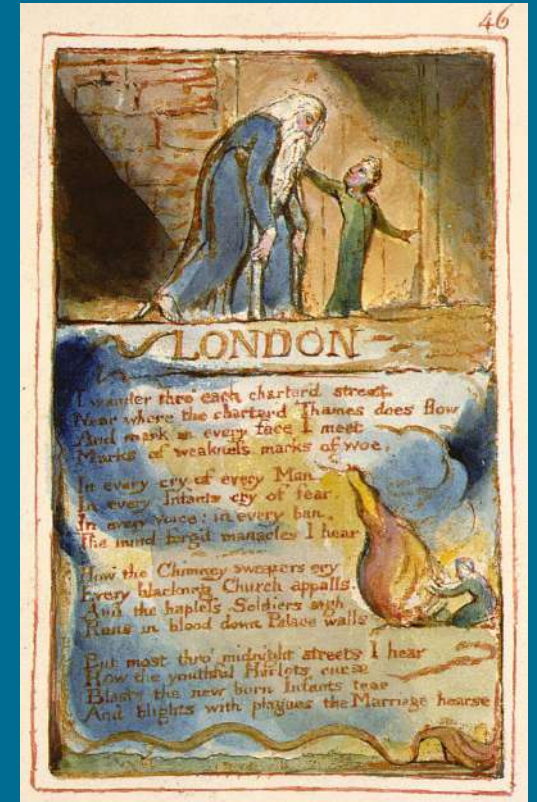 46
LONDON
I wander thro' each charter'd street,
Near where the charter'd Thames does flow
And mark in every face I meet
Marks of weakness marks of woe.
In every cry of every Man
In every Infants cry of fear.
In every voice: in every ban.
The mind-forg'd manacles I hear
How the Chimney-sweepers cry
Every blackning Church appalls.
And the hapless Soldiers sigh
Runs in blood down Palace walls
But most thro' midnight streets I hear
How the youthful Harlots curse
Blasts the new born Infants tear
And blights with plagues the Marriage hearse